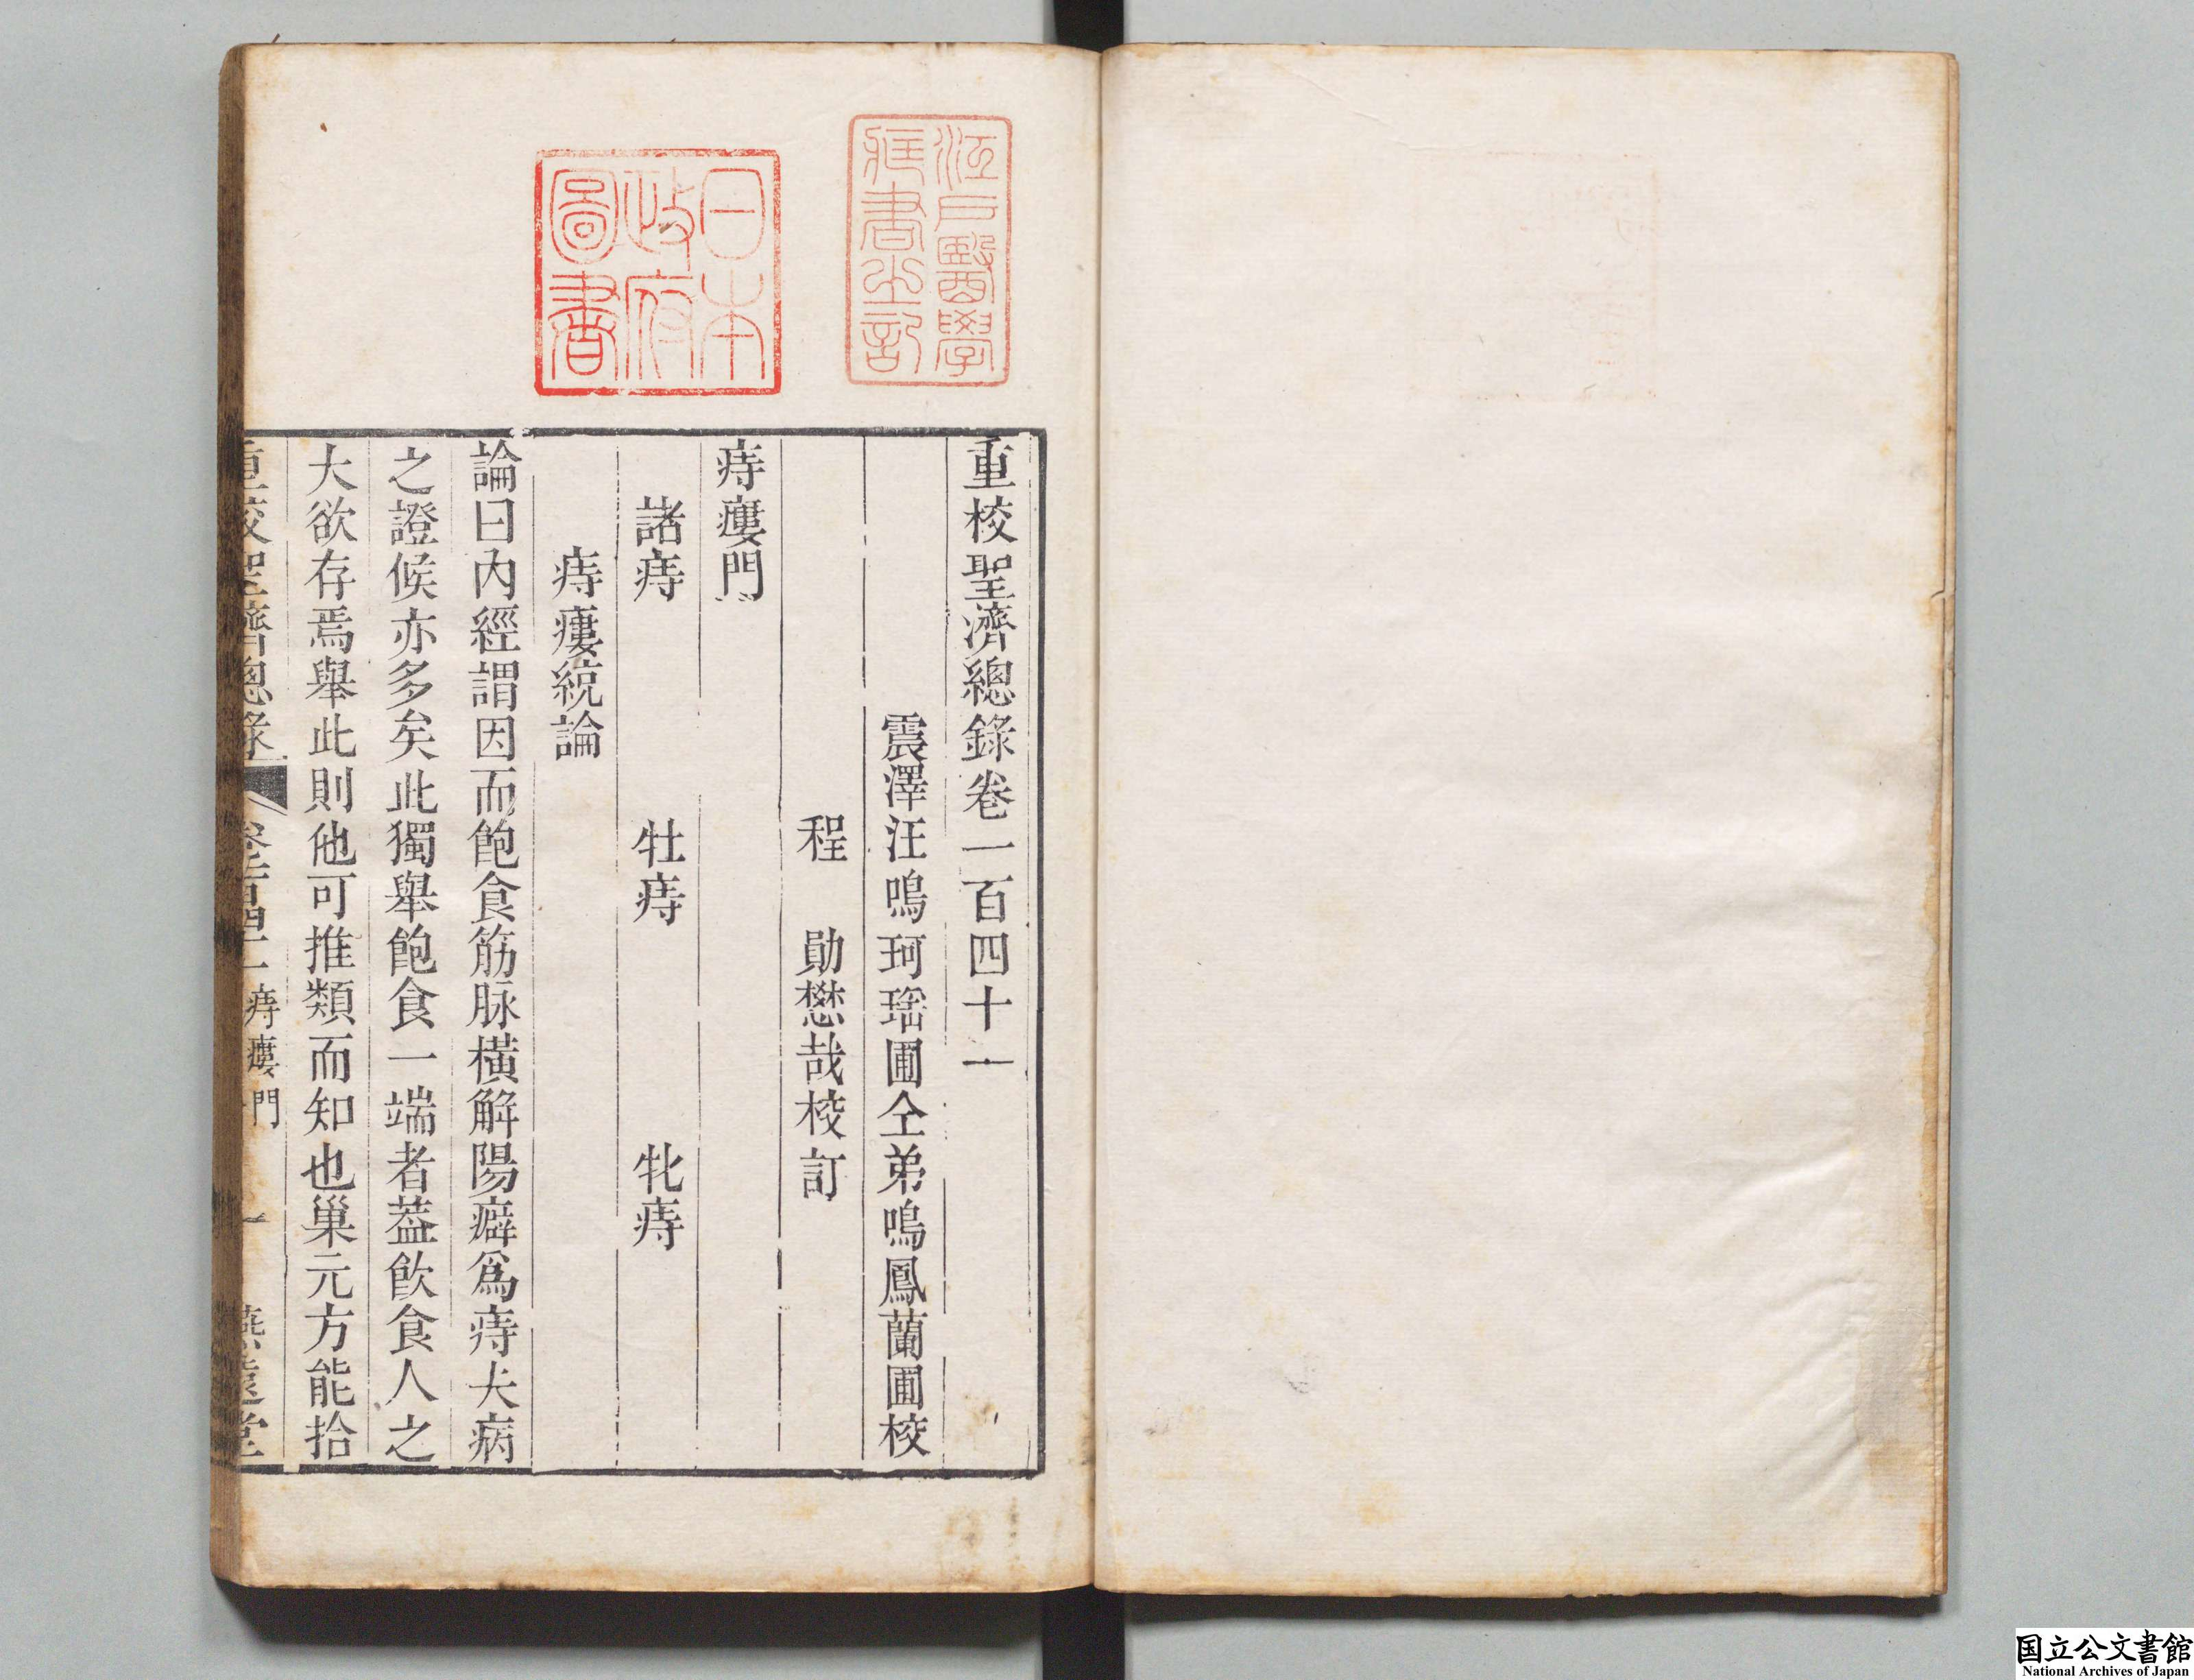 重校聖濟總錄卷一百四十一
震澤汪鳴珂瑶圃仝弟鳴鳳蘭圃校
程　勛懋哉校訂
痔瘻門
諸痔　牡痔　牝痔
痔瘻統論
論曰內經謂因而飽食筋脉橫解腸癖爲痔夫病
之證候亦多矣此獨舉飽食一端者葢飲食人之
大欲存焉舉此則他可推類而知也巢元方能拾
重校聖濟總錄　卷一百四十一　痔瘻門　一　燕遠堂
江戶醫學
藏書之記
日本
政府
圖書
国立公文書館
National Archives of Japan